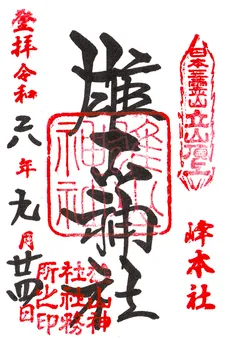 日本三霊山立山頂上
峰本社
雄山神社
雄山
神社
登拝令和六年九月廿四日
雄山神
社社務
所之印